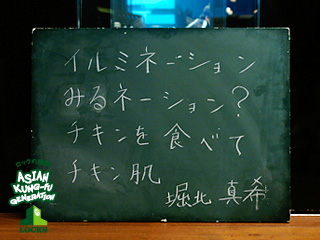 イルミネーション
みるネーション?
チキンを食べて
チキン肌
堀北 真希
ASIAN
KUNG-FU
GENERATION
LOCKS